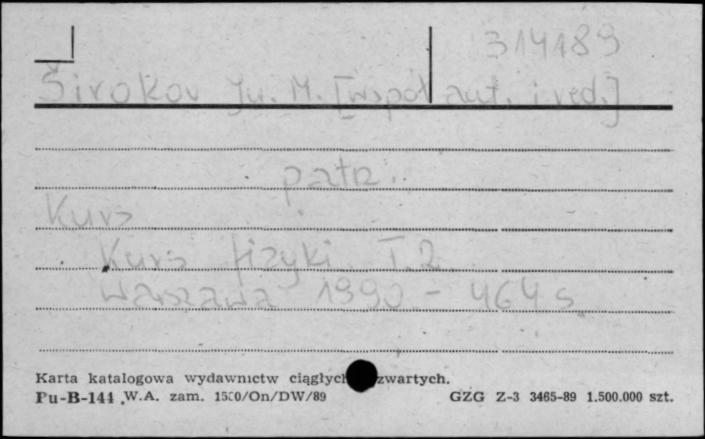 314189
Širokov Ju. M. [współaut. i red.]
patrz:
Kurs
Kurs fizyki. T.2.
Warszawa 1990 - 464 s.
Karta katalogowa wydawnictw ciągłych zwartych.
Pu-B-144 W.A. zam. 1500/On/DW/89 GZG Z-3 3465-89 1.500.000 szt.